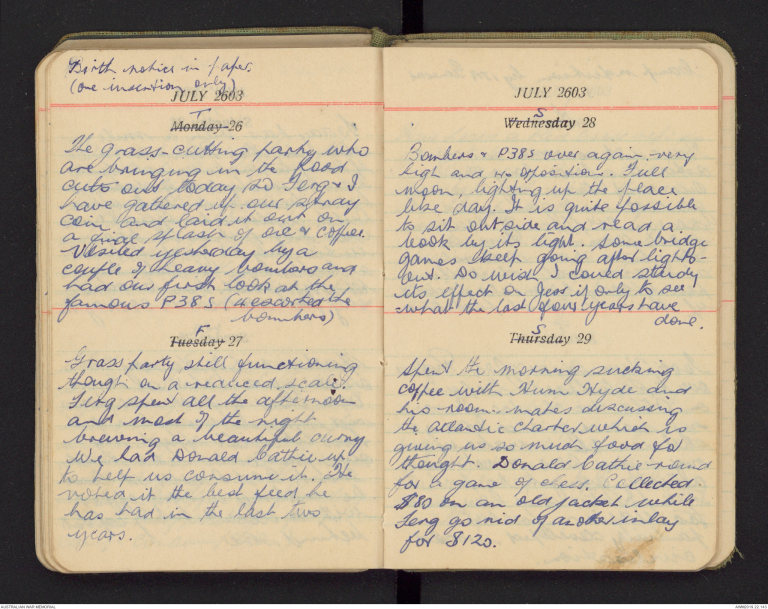 Birth notice in paper.
(one insertion only)
JULY 2603
T
Monday 26
The grass-cutting party who
are bringing in the food
cuts out today so Ferg & I
have gathered up our stray
coin and laid it out on
a final splash of oil & coffee.
Visited yesterday by a
couple of heavy bombers and
had our first look at the
famous P38s (escorted the
bombers)
F
Tuesday 27
Grass party still functioning
though on a reduced scale.
Ferg spent all the afternoon
and most of the night
brewing a beautiful curry
We had Donald Cathie up
to help us consume it. He
voted it the best feed he
has had in the last two
years.
JULY 2603
S
Wednesday 28
Bombers & P38s over again, very
high and no opposition. Full
moon, lighting up the place
like day. It is quite possible
to sit outside and read a
book by its light. Some bridge
games keep going after lights-
out. Do wish I could study
its effect on Jess if only to see
what the last four years have
done.
S
Thursday 29
Spent the morning sucking
coffee with Hum Hyde and
his room-mates discussing
the atlantic charter which is
giving us so much food for
thought. Donald Cathie round
for a game of chess. Collected
$80 on an old jacket while
Ferg go rid of another inlay
for $120.
AUSTRALIAN WAR MEMORIAL